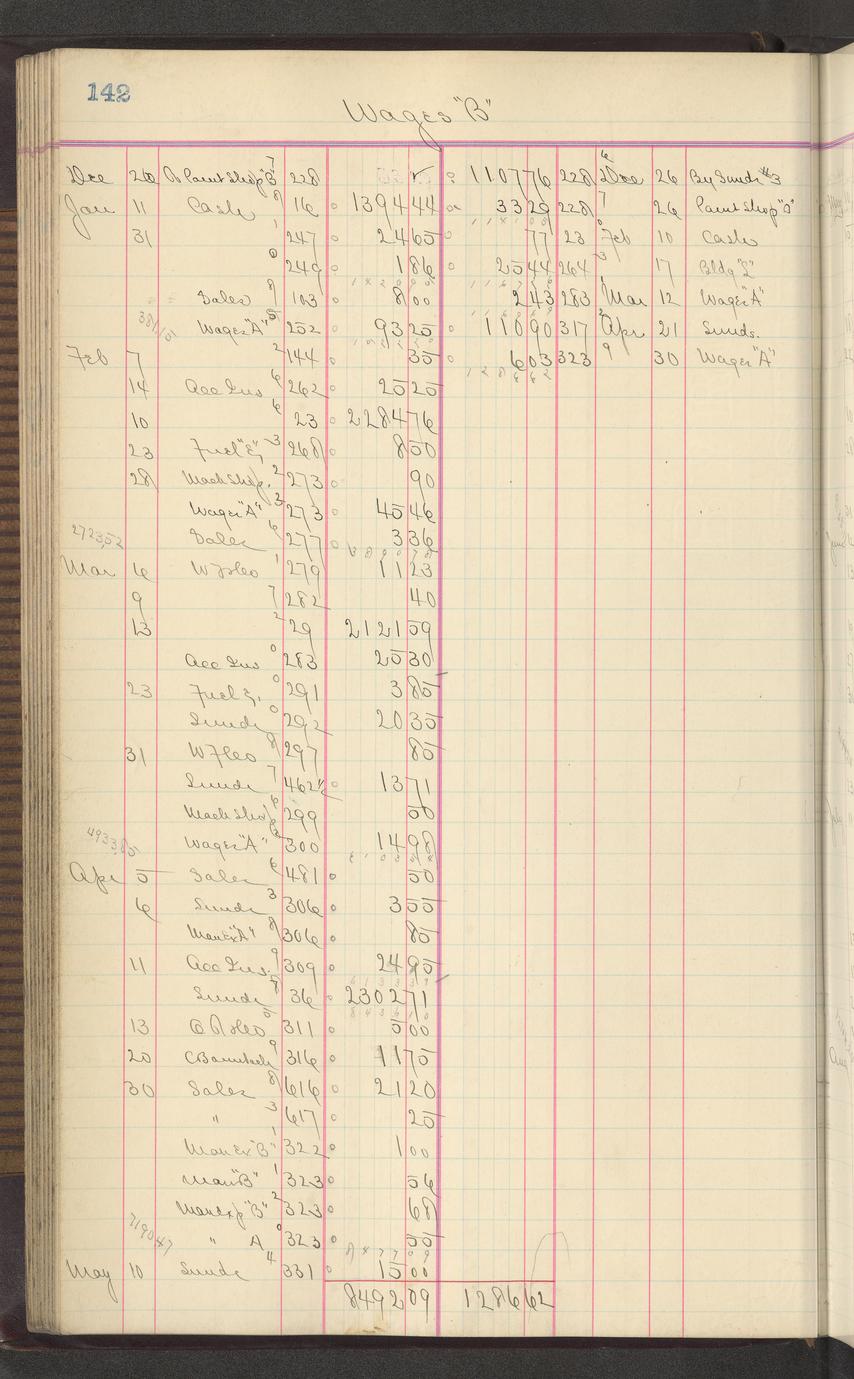 142
Wages "B"
Dec 26 To Paint Shop "B" 7 228 ✓ 110776 228 6 Dec 26 By Sunds #3
Jan 11 Cash 8 16 1394 44 33 29 228 7 26 Paint Shop "B"
31 1 247 24 65 77 23 0 Feb 10 Cash
0 249 1 86 25 44 264 3 17 Bldg "L"
Sales 9 103 8 00 2 43 283 1 Mar 12 Wages "A"
Wages "A" 252 93 25 110 90 317 2 Apr 21 Sunds.
Feb 7 2 144 35 6 03 323 9 30 Wages "A"
14 Acc Ins 6 262 25 25
10 6 23 2284 76
23 Fuel "E" 3 268 8 50
28 Mach Shop. 2 273 90
Wages "A" 3 273 45 46
2723.52
Sales 6 277 3 36
Mar 6 1 279 11 23
9 7 282 40
13 2 29 2121 59
Acc Ins 0 283 25 30
23 Fuel E. 0 291 3 85
Sunds 0 292 20 35
31 8 297 85
Sunds 7 462½ 13 71
Mach Shop 6 299 50
4933.85
Wages "A" 300 14 98
Apr 5 Sales 6 481 50
6 Sunds 3 306 3 55
Man Ex "A" 8 306 85
11 Acc Ins. 9 309 24 95
Sunds 36 2302 71
13 311 5 00
20 9 316 11 75
30 Sales 8 616 21 20
" 3 617 25
Man Ex "B" 1 322 1 00
Man "B" 1 323 56
Man Exp "B" 2 323 68
7190.47
" A 0 323 55
May 10 Sunds 4 331 15 00
8492 09 1286 62